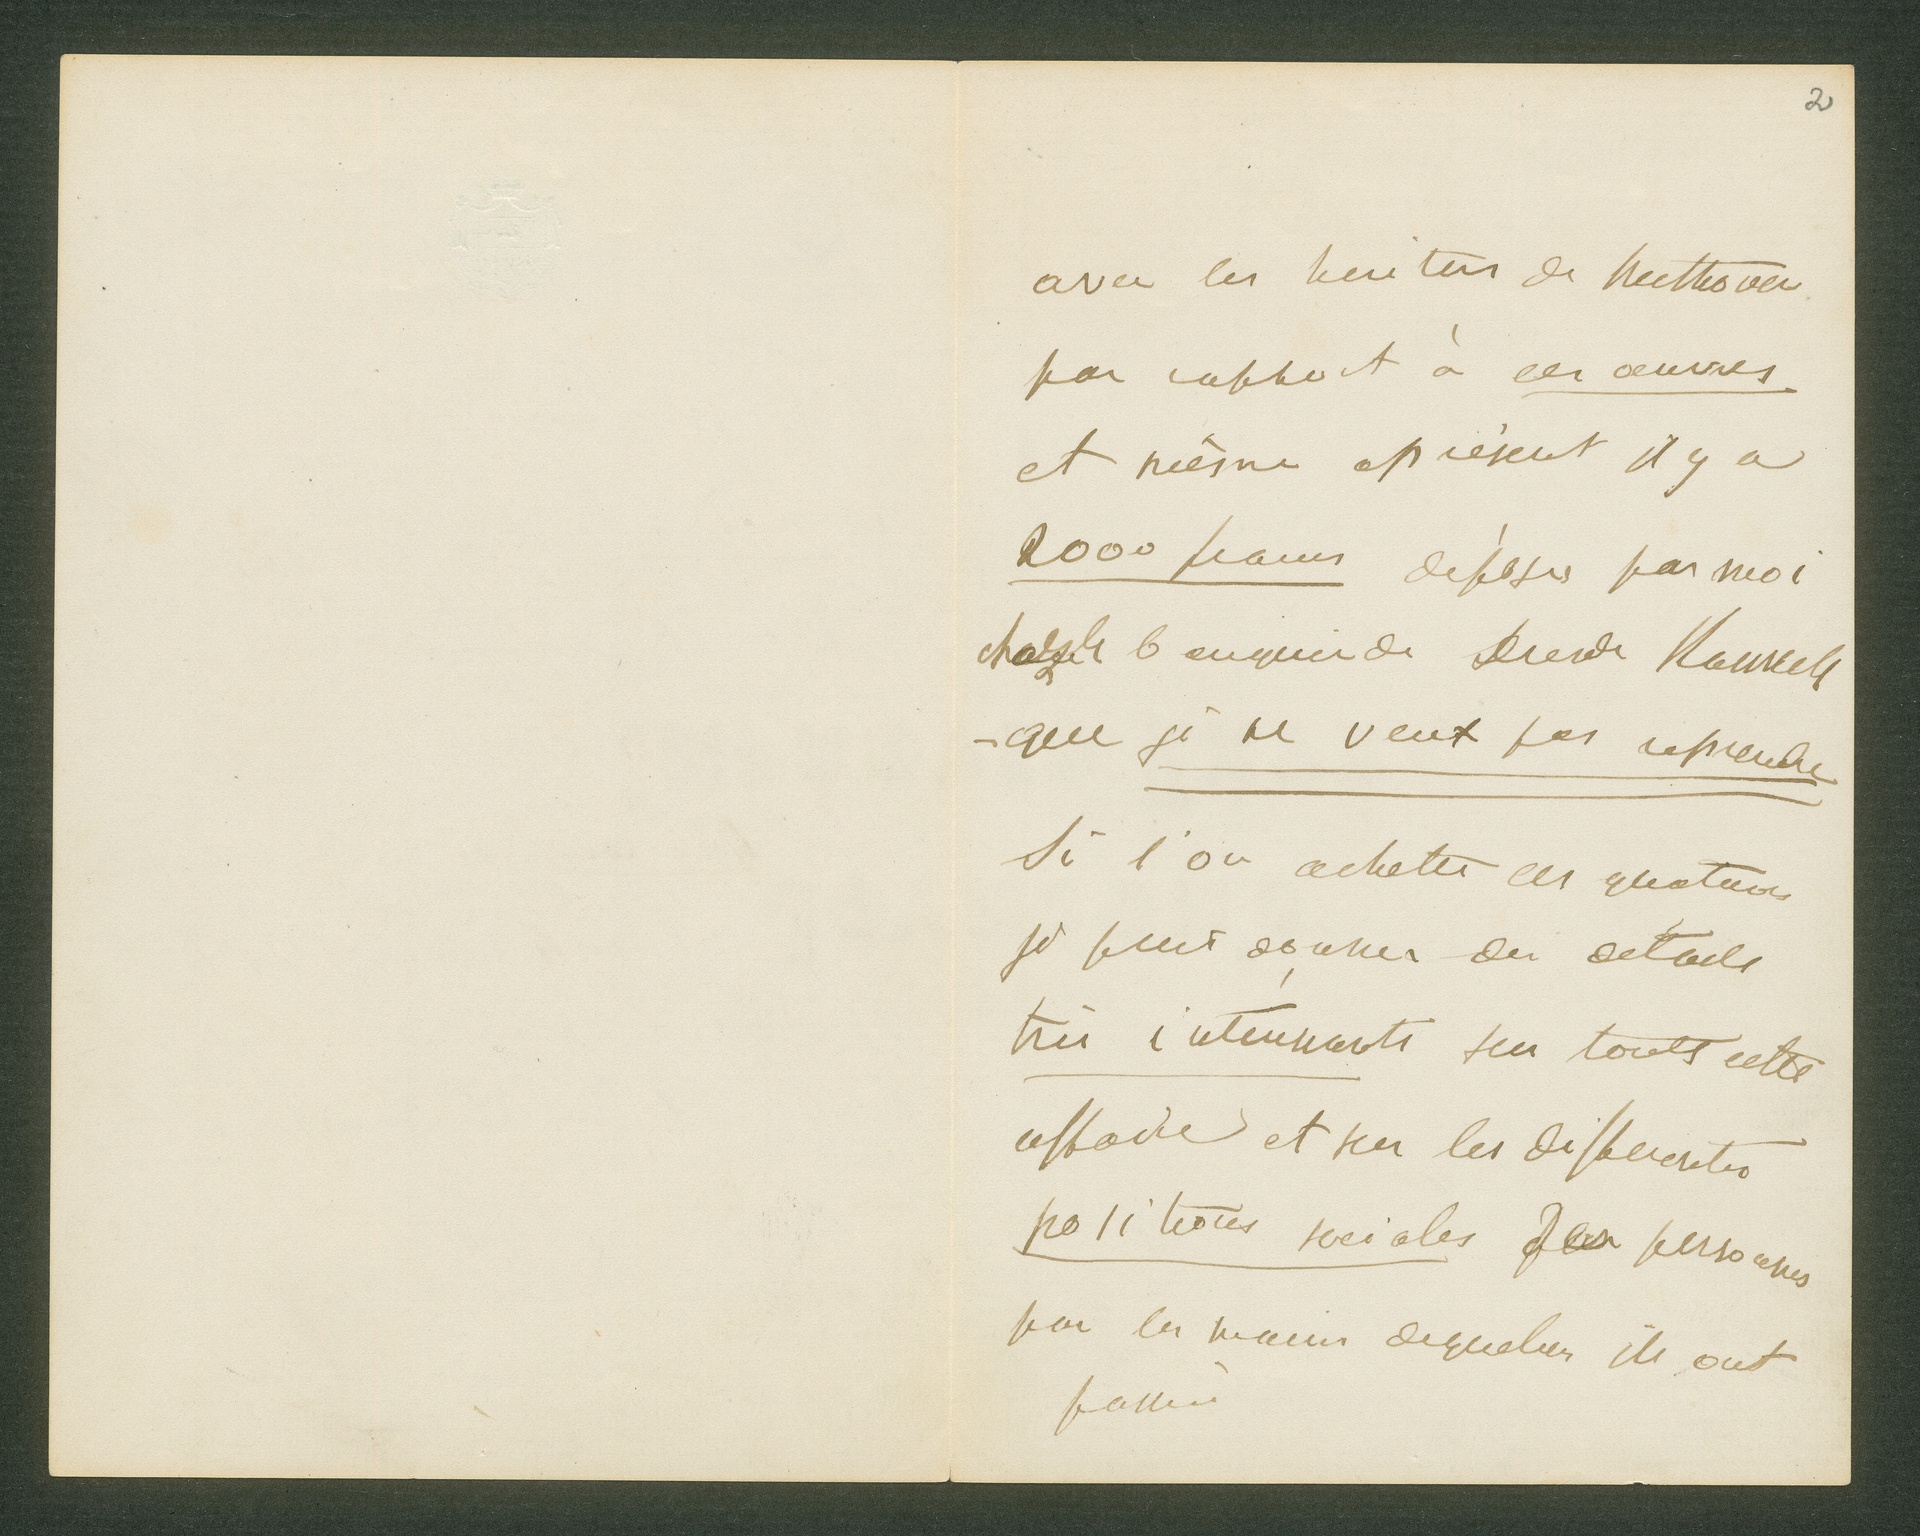 2
avec les heritiers de Beethoven
par rapport à ces œuvres
et même aprésent il y a
2000 francs déposés par moi
chez le banquier de Dresde
- que je ne veux pas reprendre
Si l'on achette ces quatuors
je puis donner des details
très intéressants sur toute cette
affaire et sur les differentes
positions sociales des personnes
par les mains desquelles ils ont
passé